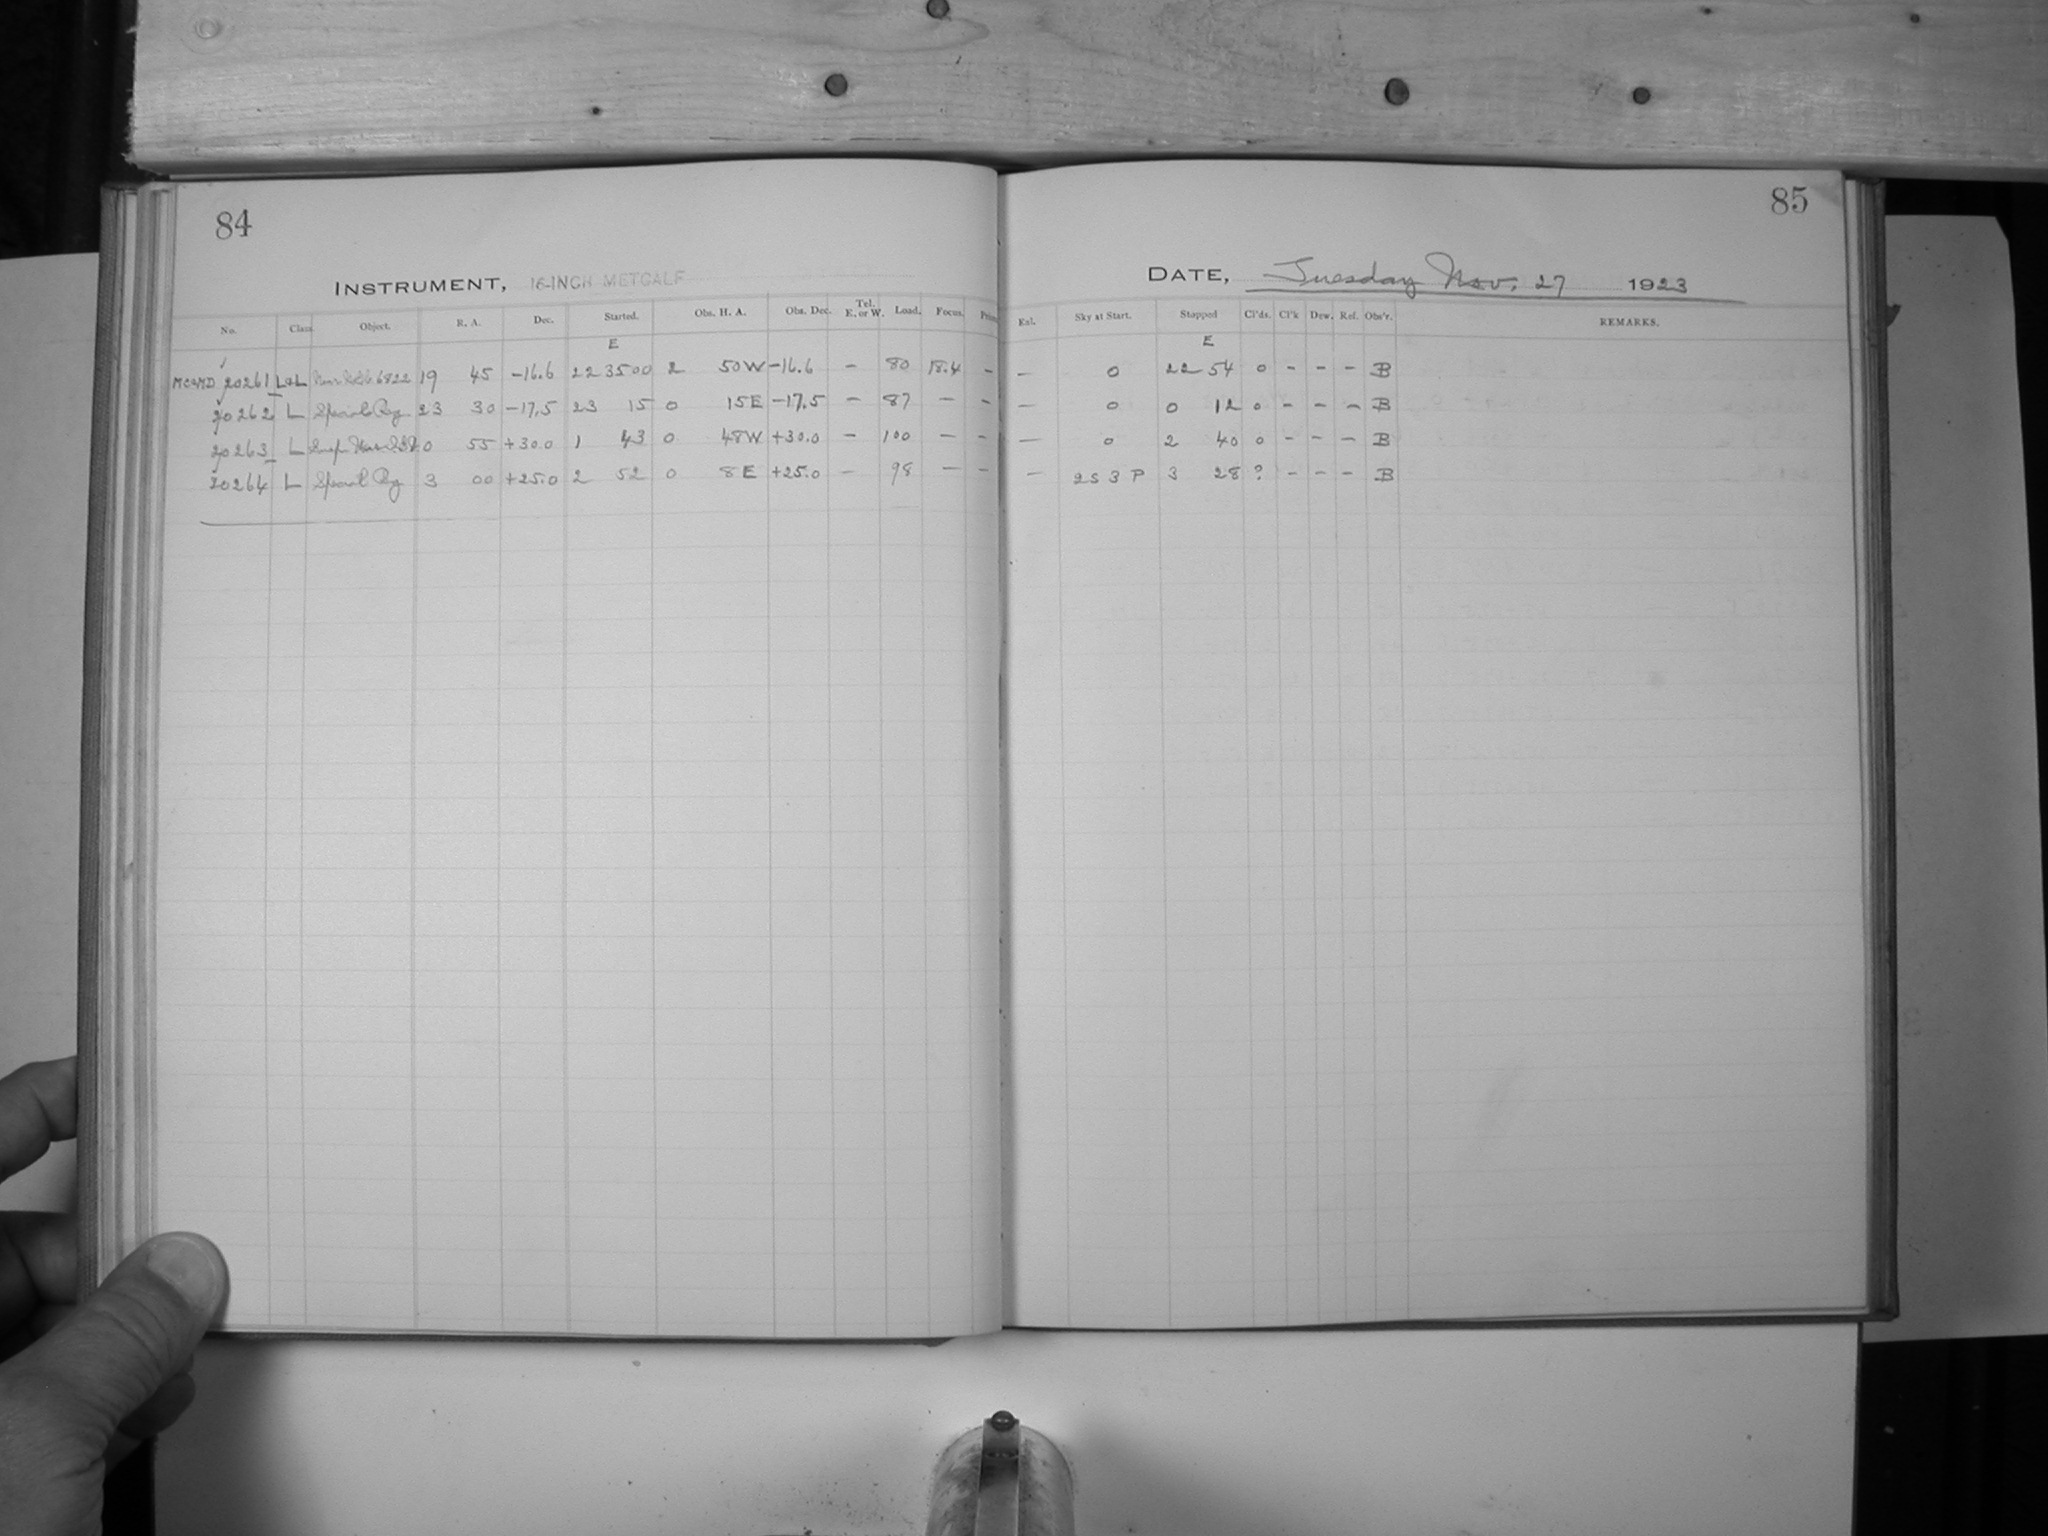 84
INSTRUMENT, 16-INCH METCALF
No. Class Object. R. A. Dec. Started. Obs. H. A. Obs. Dec. Tel. E. or W. Load. Focus.
E
MC&MD 20261 L&L 6822 19 45 -16.6 22 35 00 2 50 W -16.6 - 80 18.4 -
20262 L Special Reg 23 30 -17.5 23 15 0 15 E -17.5 - 87 - -
20263 L 0 55 +30.0 1 43 0 48 W +30.0 - 100 - -
20264 L Special Reg 3 00 +25.0 2 52 0 8 E +25.0 - 98 - -
85
DATE, Tuesday Nov. 27 1923
Exl. Sky at Start. Stopped Cl'ds. Cl'k Dew. Ref. Obs'r. REMARKS.
E
- 0 22 54 0 - - - B
- 0 0 12 0 - - - B
- 0 2 40 0 - - - B
- 2 S 3 P 3 28 ? - - - B